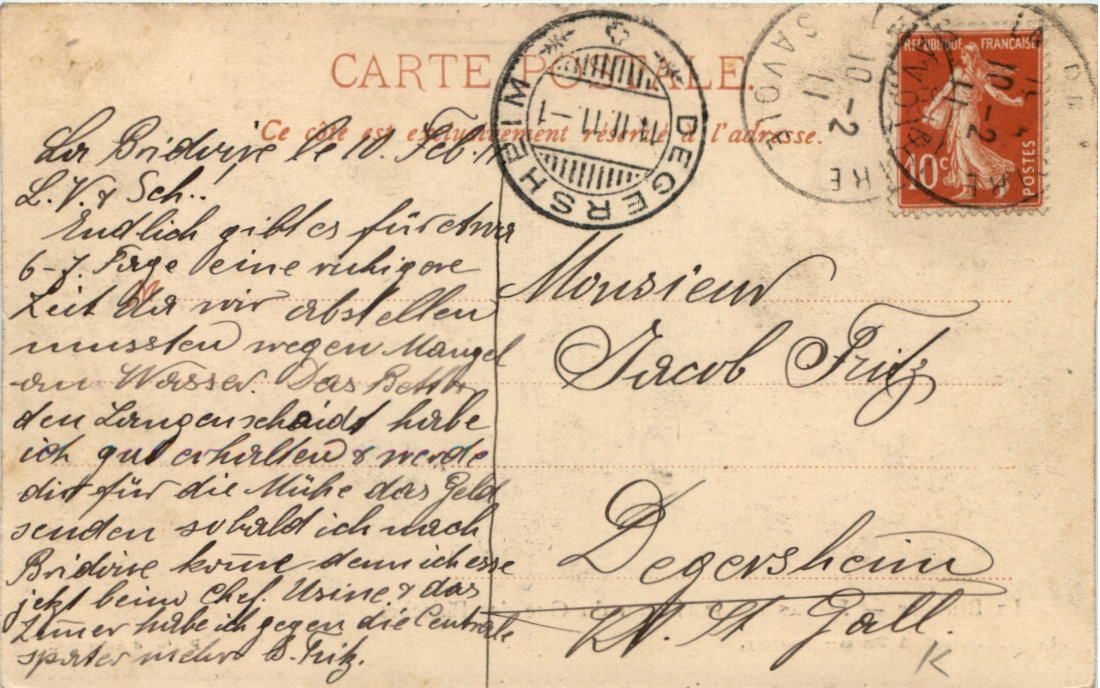 CARTE POSTALE.
Ce côté est exclusivement réservé à l'adresse.
DEGERSHEIM
11.II.11.-1
SAVOIE
10 -2
11
SAVOIE
10 -2
11
REPUBLIQUE FRANÇAISE
10c
POSTES
La Bridoire le 10. Feb. 11
L. V. & Sch..
Endlich gibt es für etwa
6-7. Tage eine ruhigere
Zeit da wir abstellen
mussten wegen Mangel
an Wasser. Das
den Langenscheidt habe
ich gut erhalten & werde
dir für die Mühe das Geld
senden sobald ich nach
Bridoire kom̄e denn ich esse
jetzt beim Chef Usine & das
Zim̄er habe ich gegen die Centrale
später mehr G. Fritz.
Monsieur
Jacob Fritz
Degersheim
Kt. St Gall.
K